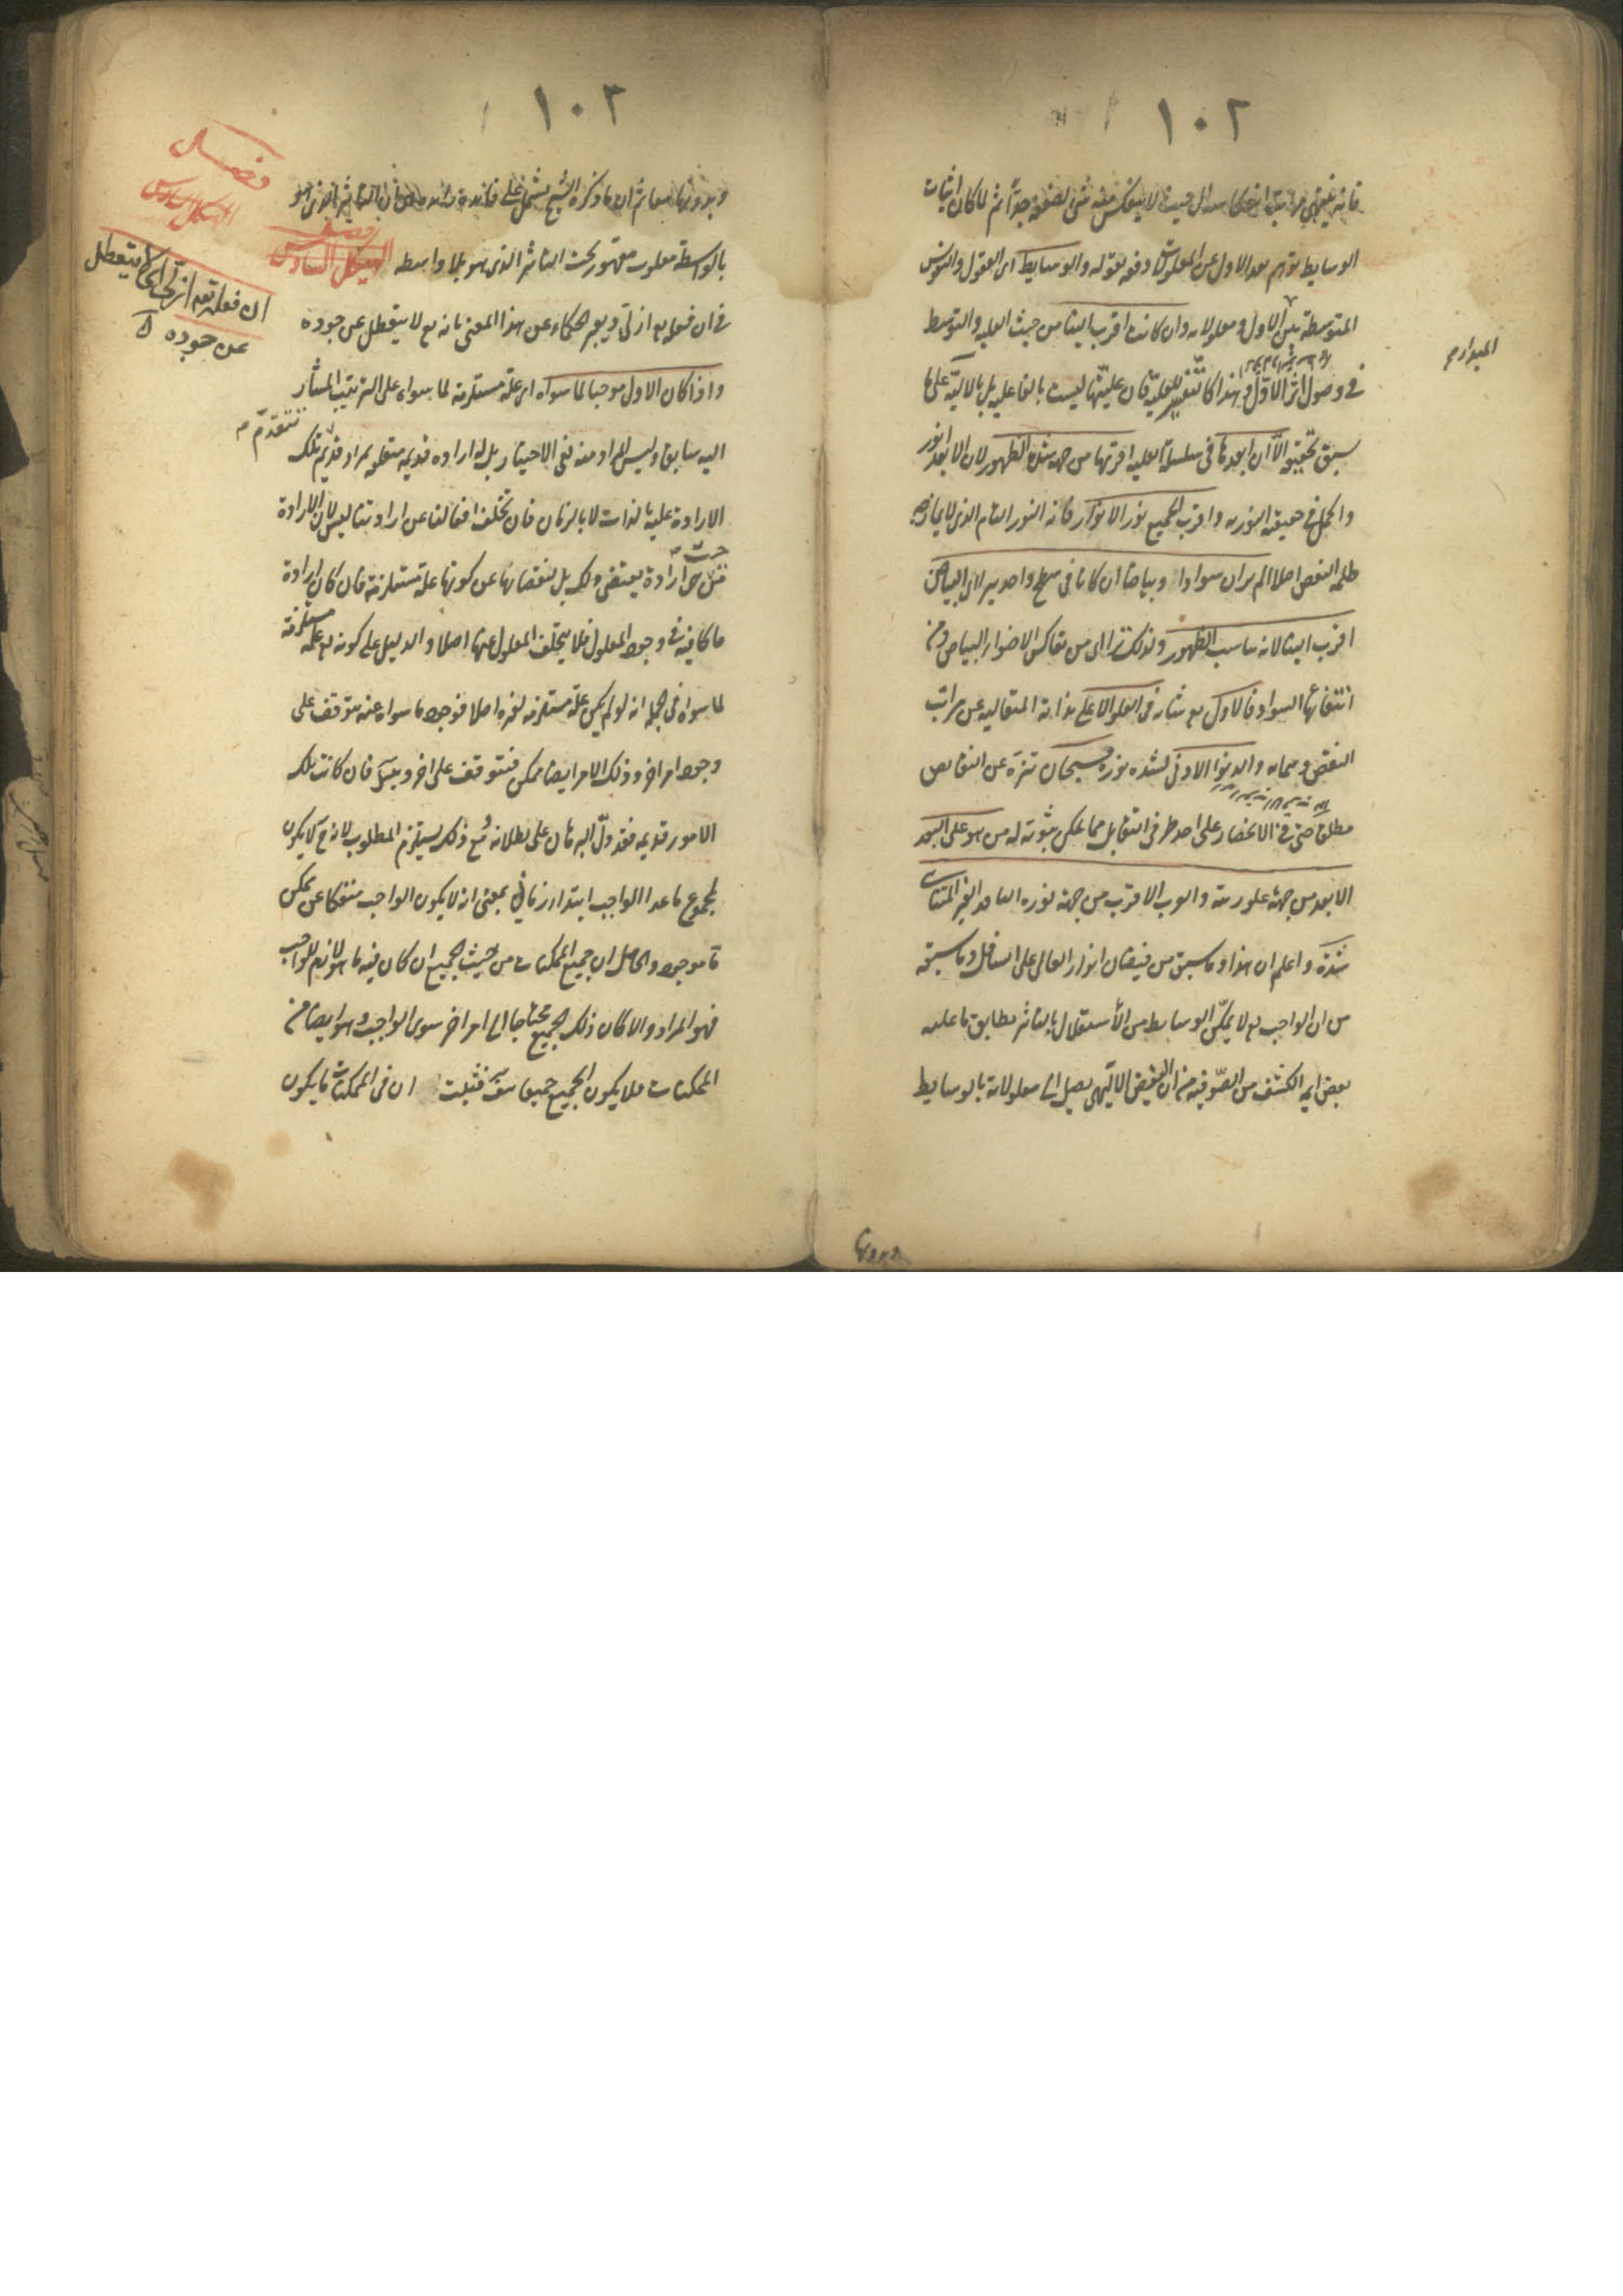 ١٠٢
فانه ينتهى مراتب انعكاسه الى حيث لا ينعكس منه شئ لضعفه جدا ثم لما كان اثبات
الوسايط توهم بعد الاول عن المعلولات دفعه بقوله والوسايط اى العقول والنفوس
المتوسطة بين الاول و معلولاته وان كانت اقرب الينا من حيث العلية والتوسط
فى وصول اثر الاول فى هذا كالتفسير للعلية فان عليتها ليست بالفاعلية بل بالآلية على ما
سبق تحقيقه الا ان ابعدها فى سلسلة العلية اقربها من جهة شدة الظهور لان الابعد انور
واكمل فى حقيقة النورية واقرب الجميع نور الانوار فانه النور التام الذى لا يمازجه
ظلمة النقص اصلا الم تر ان سوادا وبياضا ان كانا فى سطح واحد يترااى البياض
اقرب الينا لانه يناسب الظهور ولذلك تترااى من تعاكس الاضواء البياض ومن
انتفائها السواد فالاول تع شانه فى العلو الاعلى بذاته المتعالية عن مراتب
النقص وسماته والدنو الادنى لشدة نوره فسبحان تنزه عن النقايص
مطلقا حتى فى الانحصار على احد طرفى التقابل مما يمكن ثبوته له من هو على البعد
الابعد من جهة علو رتبته والقرب الاقرب من جهة نوره النافذ الغير المتناهى
شدة واعلم ان هذا وما سبق من فيضان انوار العالى على السافل وما سبقه
من ان الواجب تع لا يمكن الوسايط من الاستقلال بالتاثير مطابق ما عليه
بعض ايمة الكشف من الصوفيه من ان الفيض الالهى يصل الى معلولاته بالوسايط
وبدونها
١٠٣
وبدونها معا ثم ان ما ذكره الشيخ يشتمل على فائدة زائدة هى ان التاثير الذى هو
بالواسطة مغلوب مقهور تحت التاثير الذى هو بلا واسطه الهيكل السادس
فى ان فعله تع ازلى ويعبر الحكماء عن هذا المعنى بانه تع لا يتعطل عن جوده
واذا كان الاول موجبا لما سواه اى علة مستلزمة لما سواه على الترتيب المشار
اليه سابق وليس المراد منه نفى الاختيار بل له ارادة قديمه متعلقه بمراد قديم تتقدم تلك
الارادة عليه بالذات لا بالزمان فان تخلف افعالنا عن ارادتنا ليس لان الارادة
من حيث ارادة يقتضى ذلك بل لنقصانها عن كونها علة مستلزمة فان كان ارادة
ما كافية فى وجود المعلول فلا يتخلف المعلول عنها اصلا والدليل على كونه تع علة مستلزمة
لما سواه فى الجملة انه لو لم يكن علة مستلزمه لغيره اصلا فوجود ما سواه عنه يتوقف على
وجود امر اخر وذلك الامر ايضا ممكن فيتوقف على اخر ويتس فان كانت تلك
الامور قديمه فقد دل البرهان على بطلانه مع ذلك يستلزم المطلوب لانه ح لا يكون
لمجموع ما عدا الواجب ابتداء زمانى بمعنى ان لا يكون الواجب منفكا عن ممكن
ما موجود والحاصل ان جميع الممكنات من حيث الجميع ان كان فيه ما هو لازم للواجب
فهو المراد والا كان ذلك الجميع محتاجا الى امر اخر سوى الواجب وهو ايضا من
الممكنات فلا يكون الجميع جميعا هف فثبت ان فى الممكنات ما يكون
فصل
الهيكل السادس
ان فعله تعه ازلى اى لا يتعطل
عن جوده